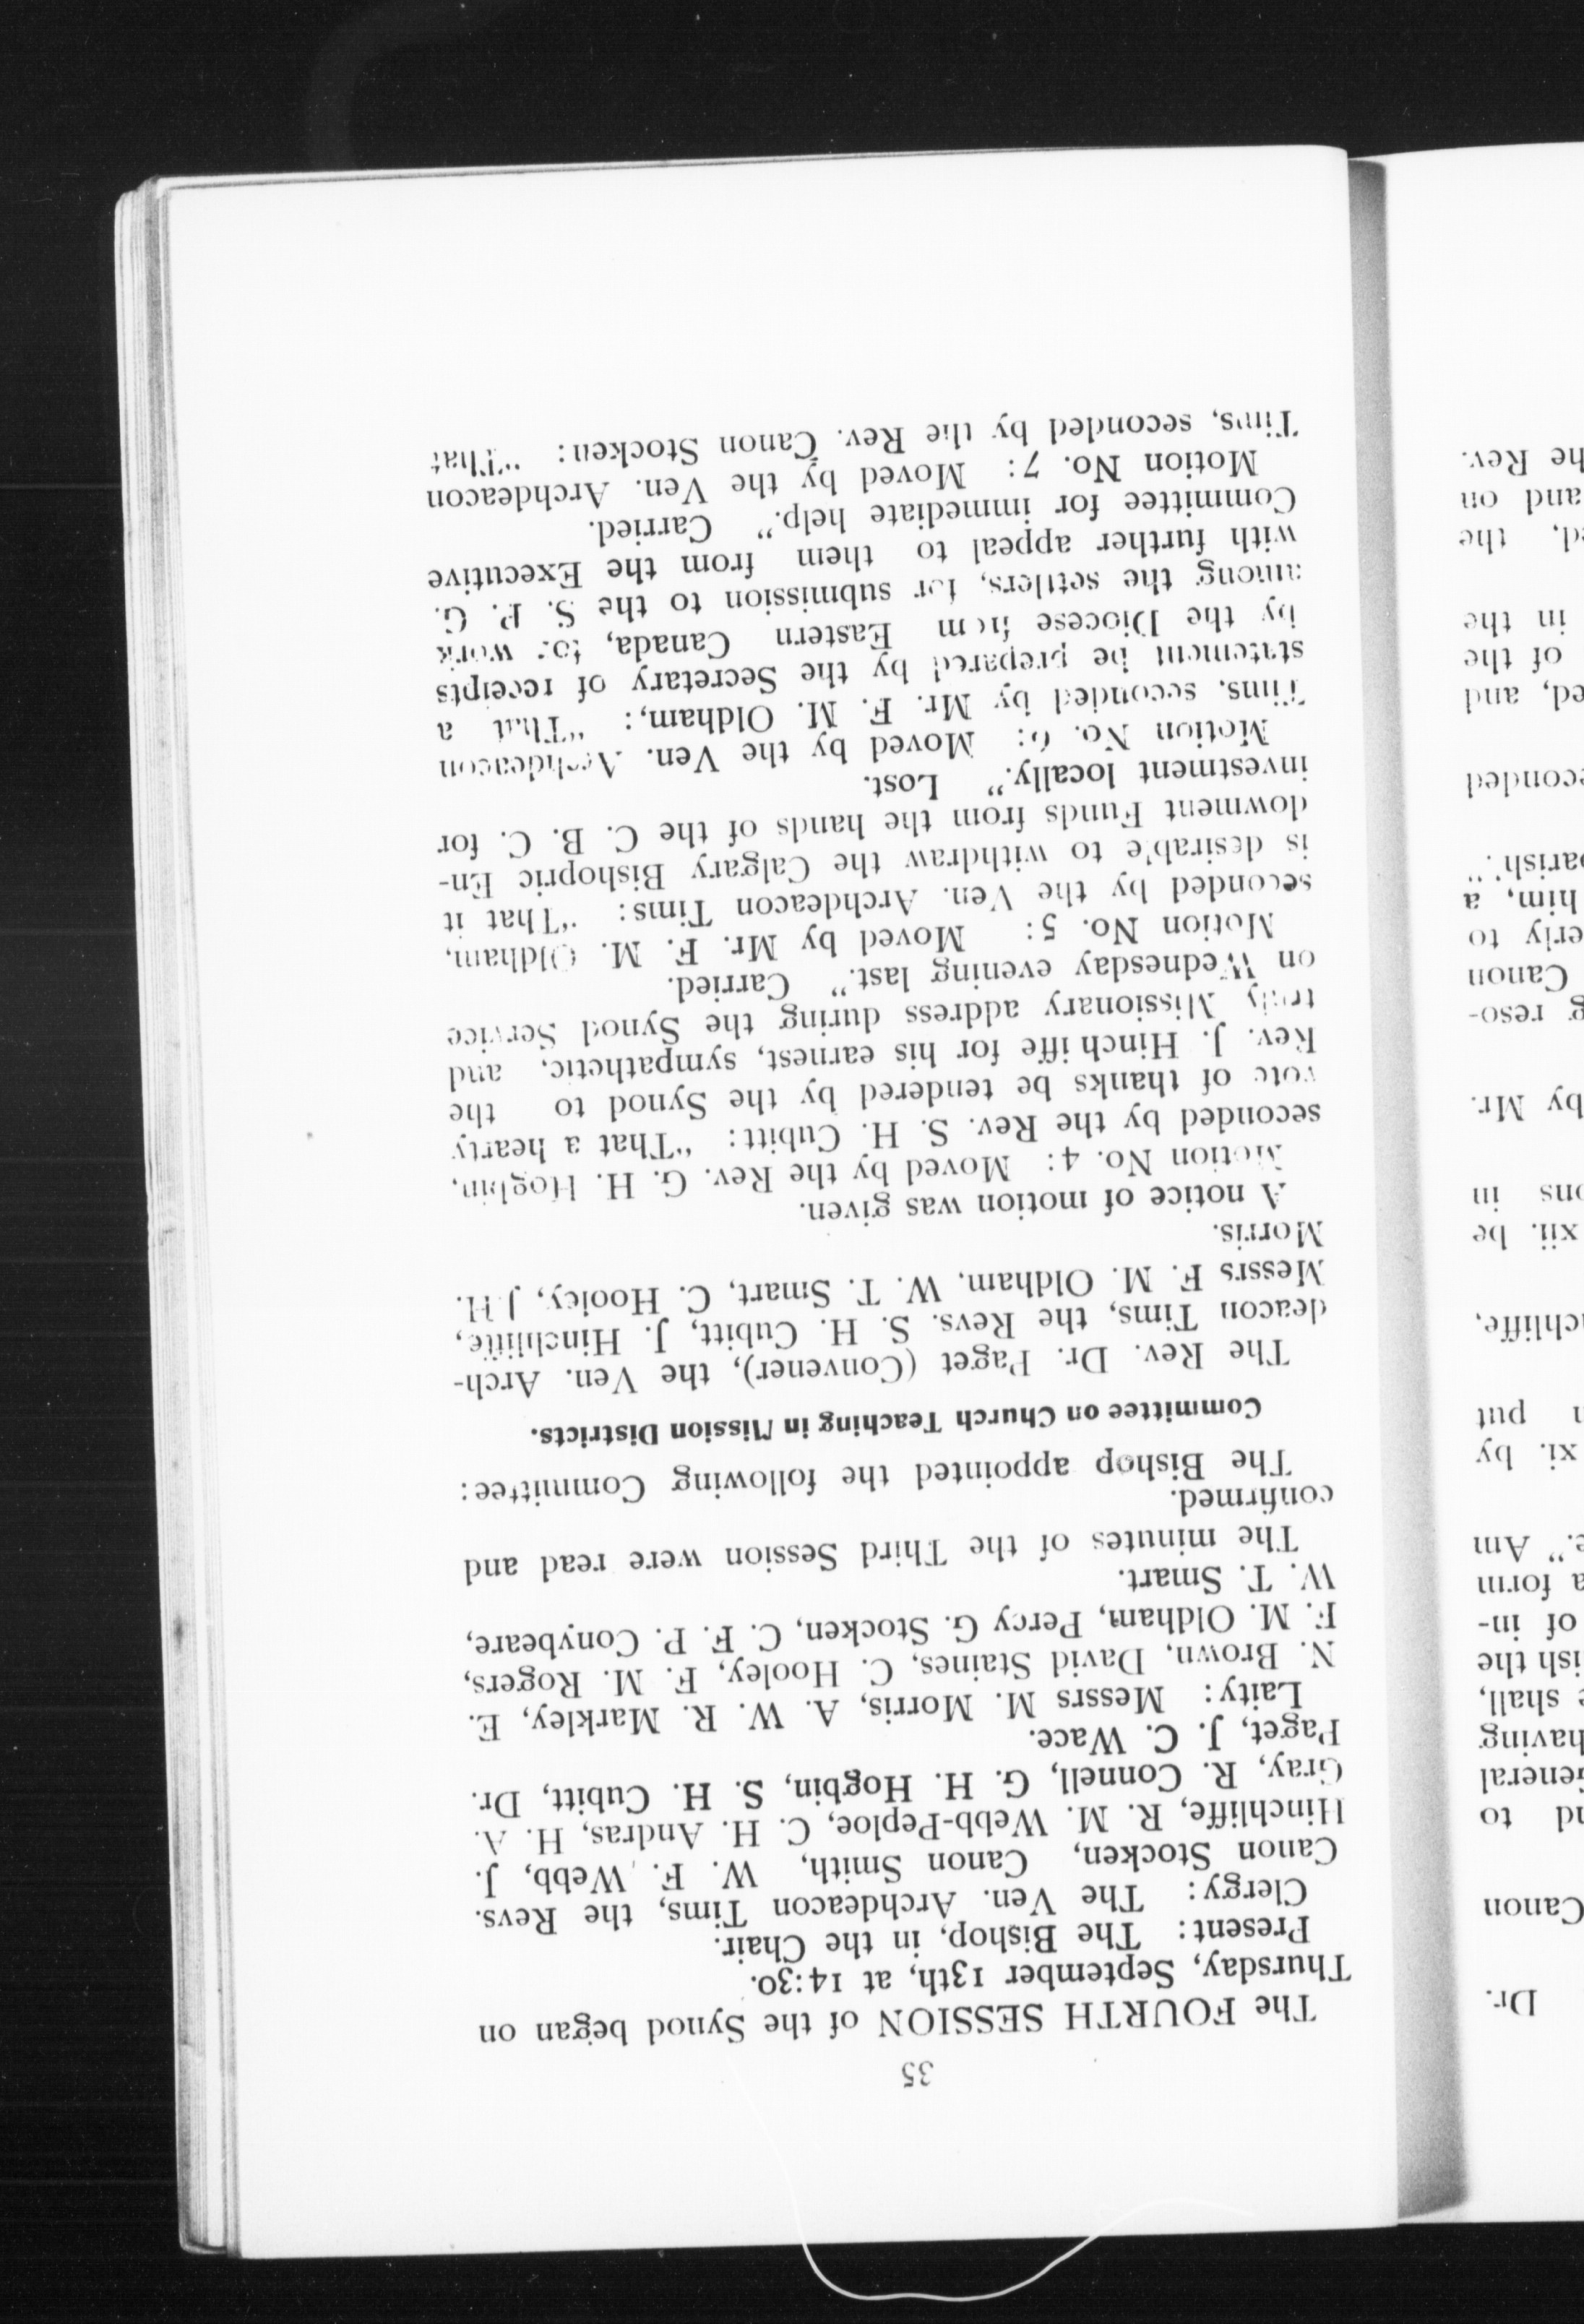 35
The FOURTH SESSION of the Synod began on
Thursday, September 13th, at 14:30.
Present: The Bishop, in the Chair.
Clergy: The Ven. Archdeacon Tims, the Revs.
Canon Stocken, Canon Smith, W. F. Webb, J.
Hinchliffe, R. M. Webb-Peploe, C. H. Andras, H. A.
Gray, R. Connell, G. H. Hogbin, S. H. Cubitt, Dr.
Paget, J. C. Wace.
Laity: Messrs M. Morris, A. W. R. Markley, E.
N. Brown, David Staines, C. Hooley, F. M. Rogers,
F. M. Oldham, Percy G. Stocken, C. F. P. Conybeare,
W. T. Smart.
The minutes of the Third Session were read and
confirmed.
The Bishop appointed the following Committee:
Committee on Church Teaching in Mission Districts.
The Rev. Dr. Paget (Convener), the Ven. Arch-
deacon Tims, the Revs. S. H. Cubitt, J. Hinchliffe,
Messrs F. M. Oldham, W. T. Smart, C. Hooley, J H.
Morris.
A notice of motion was given.
Motion No. 4: Moved by the Rev. G. H. Hogbin,
seconded by the Rev. S. H. Cubitt: "That a hearty
vote of thanks be tendered by the Synod to the
Rev. J. Hinchliffe for his earnest, sympathetic, and
truly Missionary address during the Synod Service
on Wednesday evening last." Carried.
Motion No. 5: Moved by Mr. F. M. Oldham,
seconded by the Ven. Archdeacon Tims: "That it
is desirable to withdraw the Calgary Bishopric En-
dowment Funds from the hands of the C. B. C. for
investment locally." Lost.
Motion No. 6: Moved by the Ven. Archdeacon
Tims, seconded by Mr. F. M. Oldham,: "That a
statement be prepared by the Secretary of receipts
by the Diocese from Eastern Canada, for work
among the settlers, for submission to the S. P. G.
with further appeal to them from the Executive
Committee for immediate help." Carried.
Motion No. 7: Moved by the Ven. Archdeacon
Tims, seconded by the Rev. Canon Stocken: "That